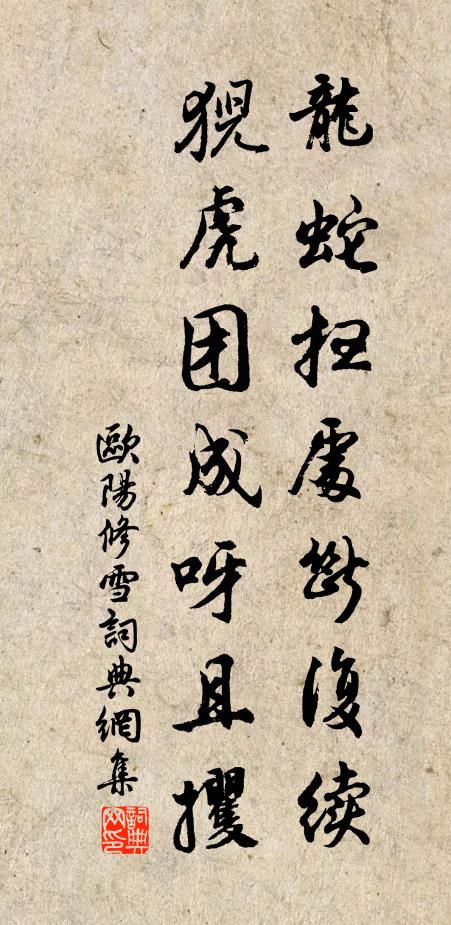 龍蛇扫處断復续
猊虎团成呀且攫
歐陽修雪詞典網集
詞典网印